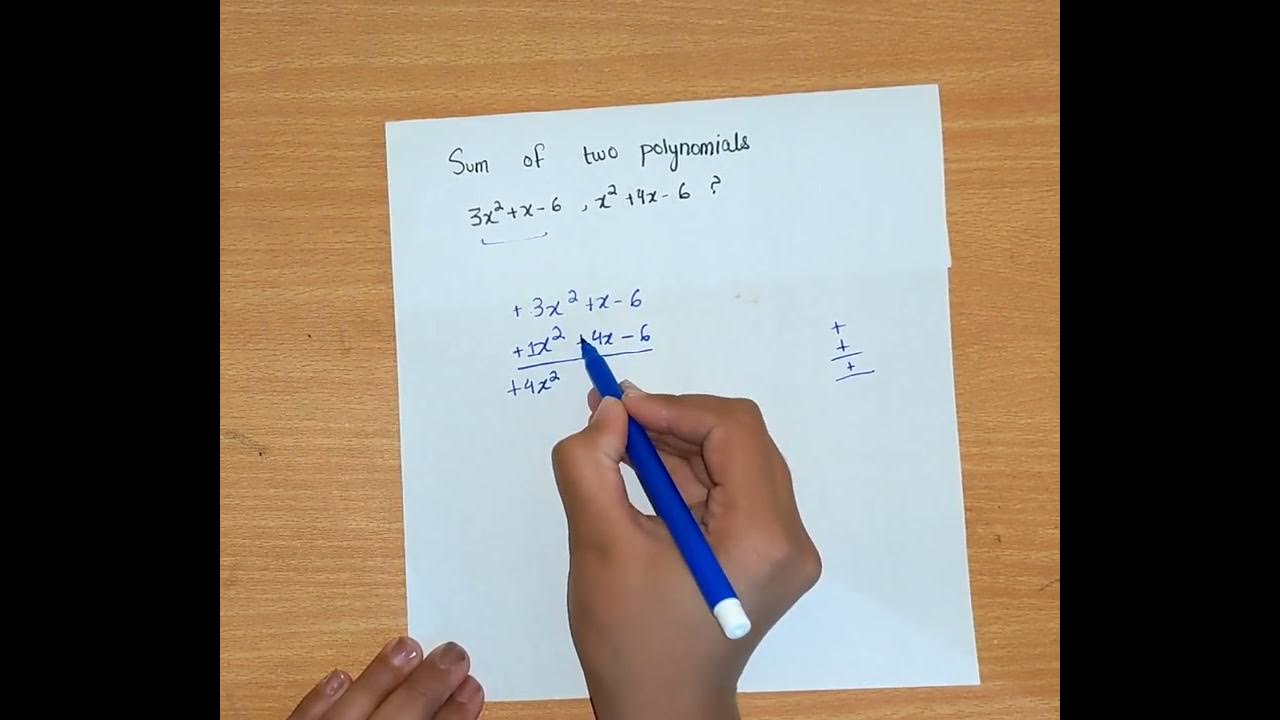 Sum of two polynomials
3x² + x - 6 , x² + 4x - 6 ?
+ 3x² + x - 6
+ 1x² + 4x - 6
+ 4x²
+
+
+